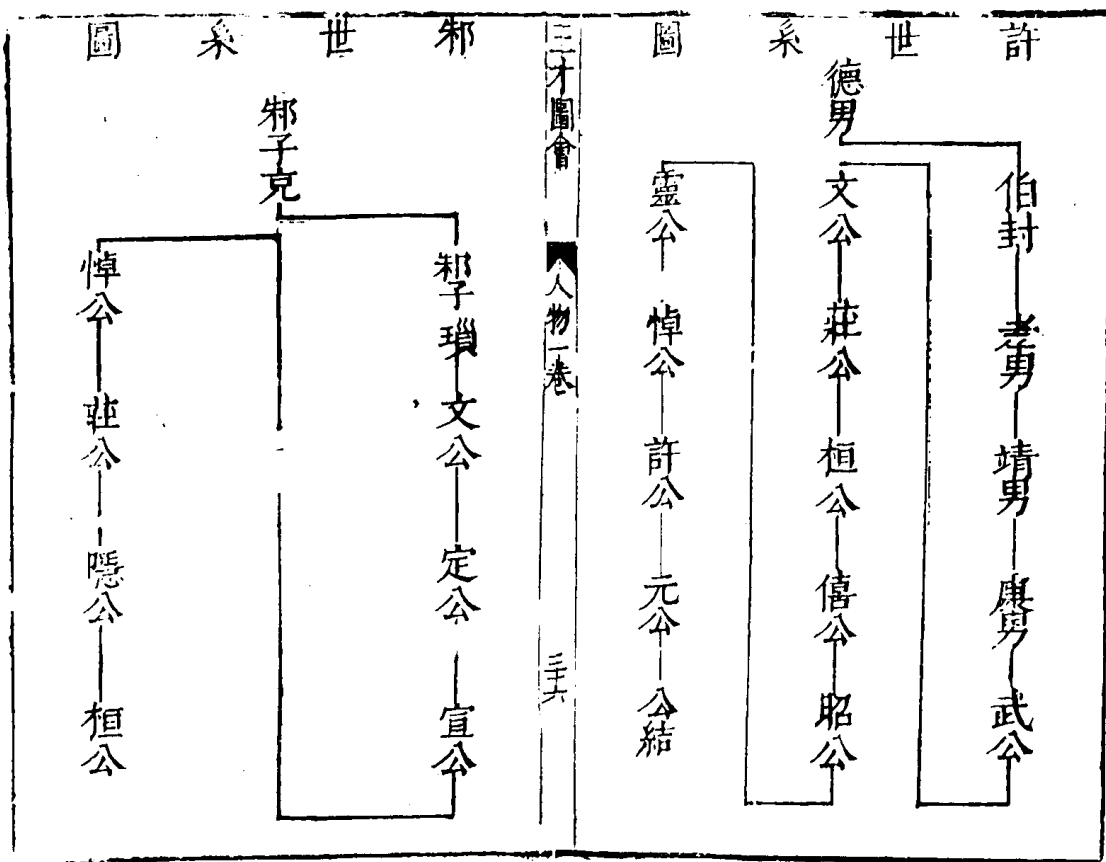 許世系圖
德男
伯封
孝男
靖男
康男
武公
文公
莊公
桓公
僖公
昭公
靈公
悼公
許公
元公
公結
三才圖會
人物一卷
三十六
邾世系圖
邾子克
邾子瑣
文公
定公
宣公
悼公
莊公
隱公
桓公